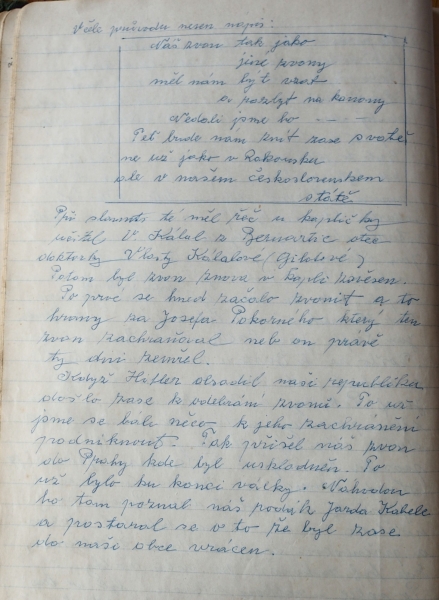 V čele průvodu nesen nápis:
Náš zvon tak jako
jiné zvony
měl nám být vzat
a pozbyt na kanony
Nedali jsme ho - - -
Teď bude nám znít zase svatě
ne už jako v Rakousku
ale v našem československém
státě
Při slavnosti té měl řeč u kapličky
učitel V. Kálal z Bernartic otec
doktorky Vlasty Kálalové (Gilotové)
Potom byl zvon znova v kapli zavěšen.
Po prvé se hned začalo zvonit a to
hrany za Josefa Pokorného který ten
zvon zachraňoval neb on právě
ty dni zemřel.
Když Hitler obsadil naši republiku
došlo zase k odebrání zvonů. To už
jsme se báli něco k jeho zachránění
podniknout. Tak přišel náš zvon
do Prahy kde byl uskladněn. To
už bylo ku konci války. Náhodou
ho tam poznal náš rodák Jarda Kabele
a postaral se o to že byl zase
do naší obce vrácen.